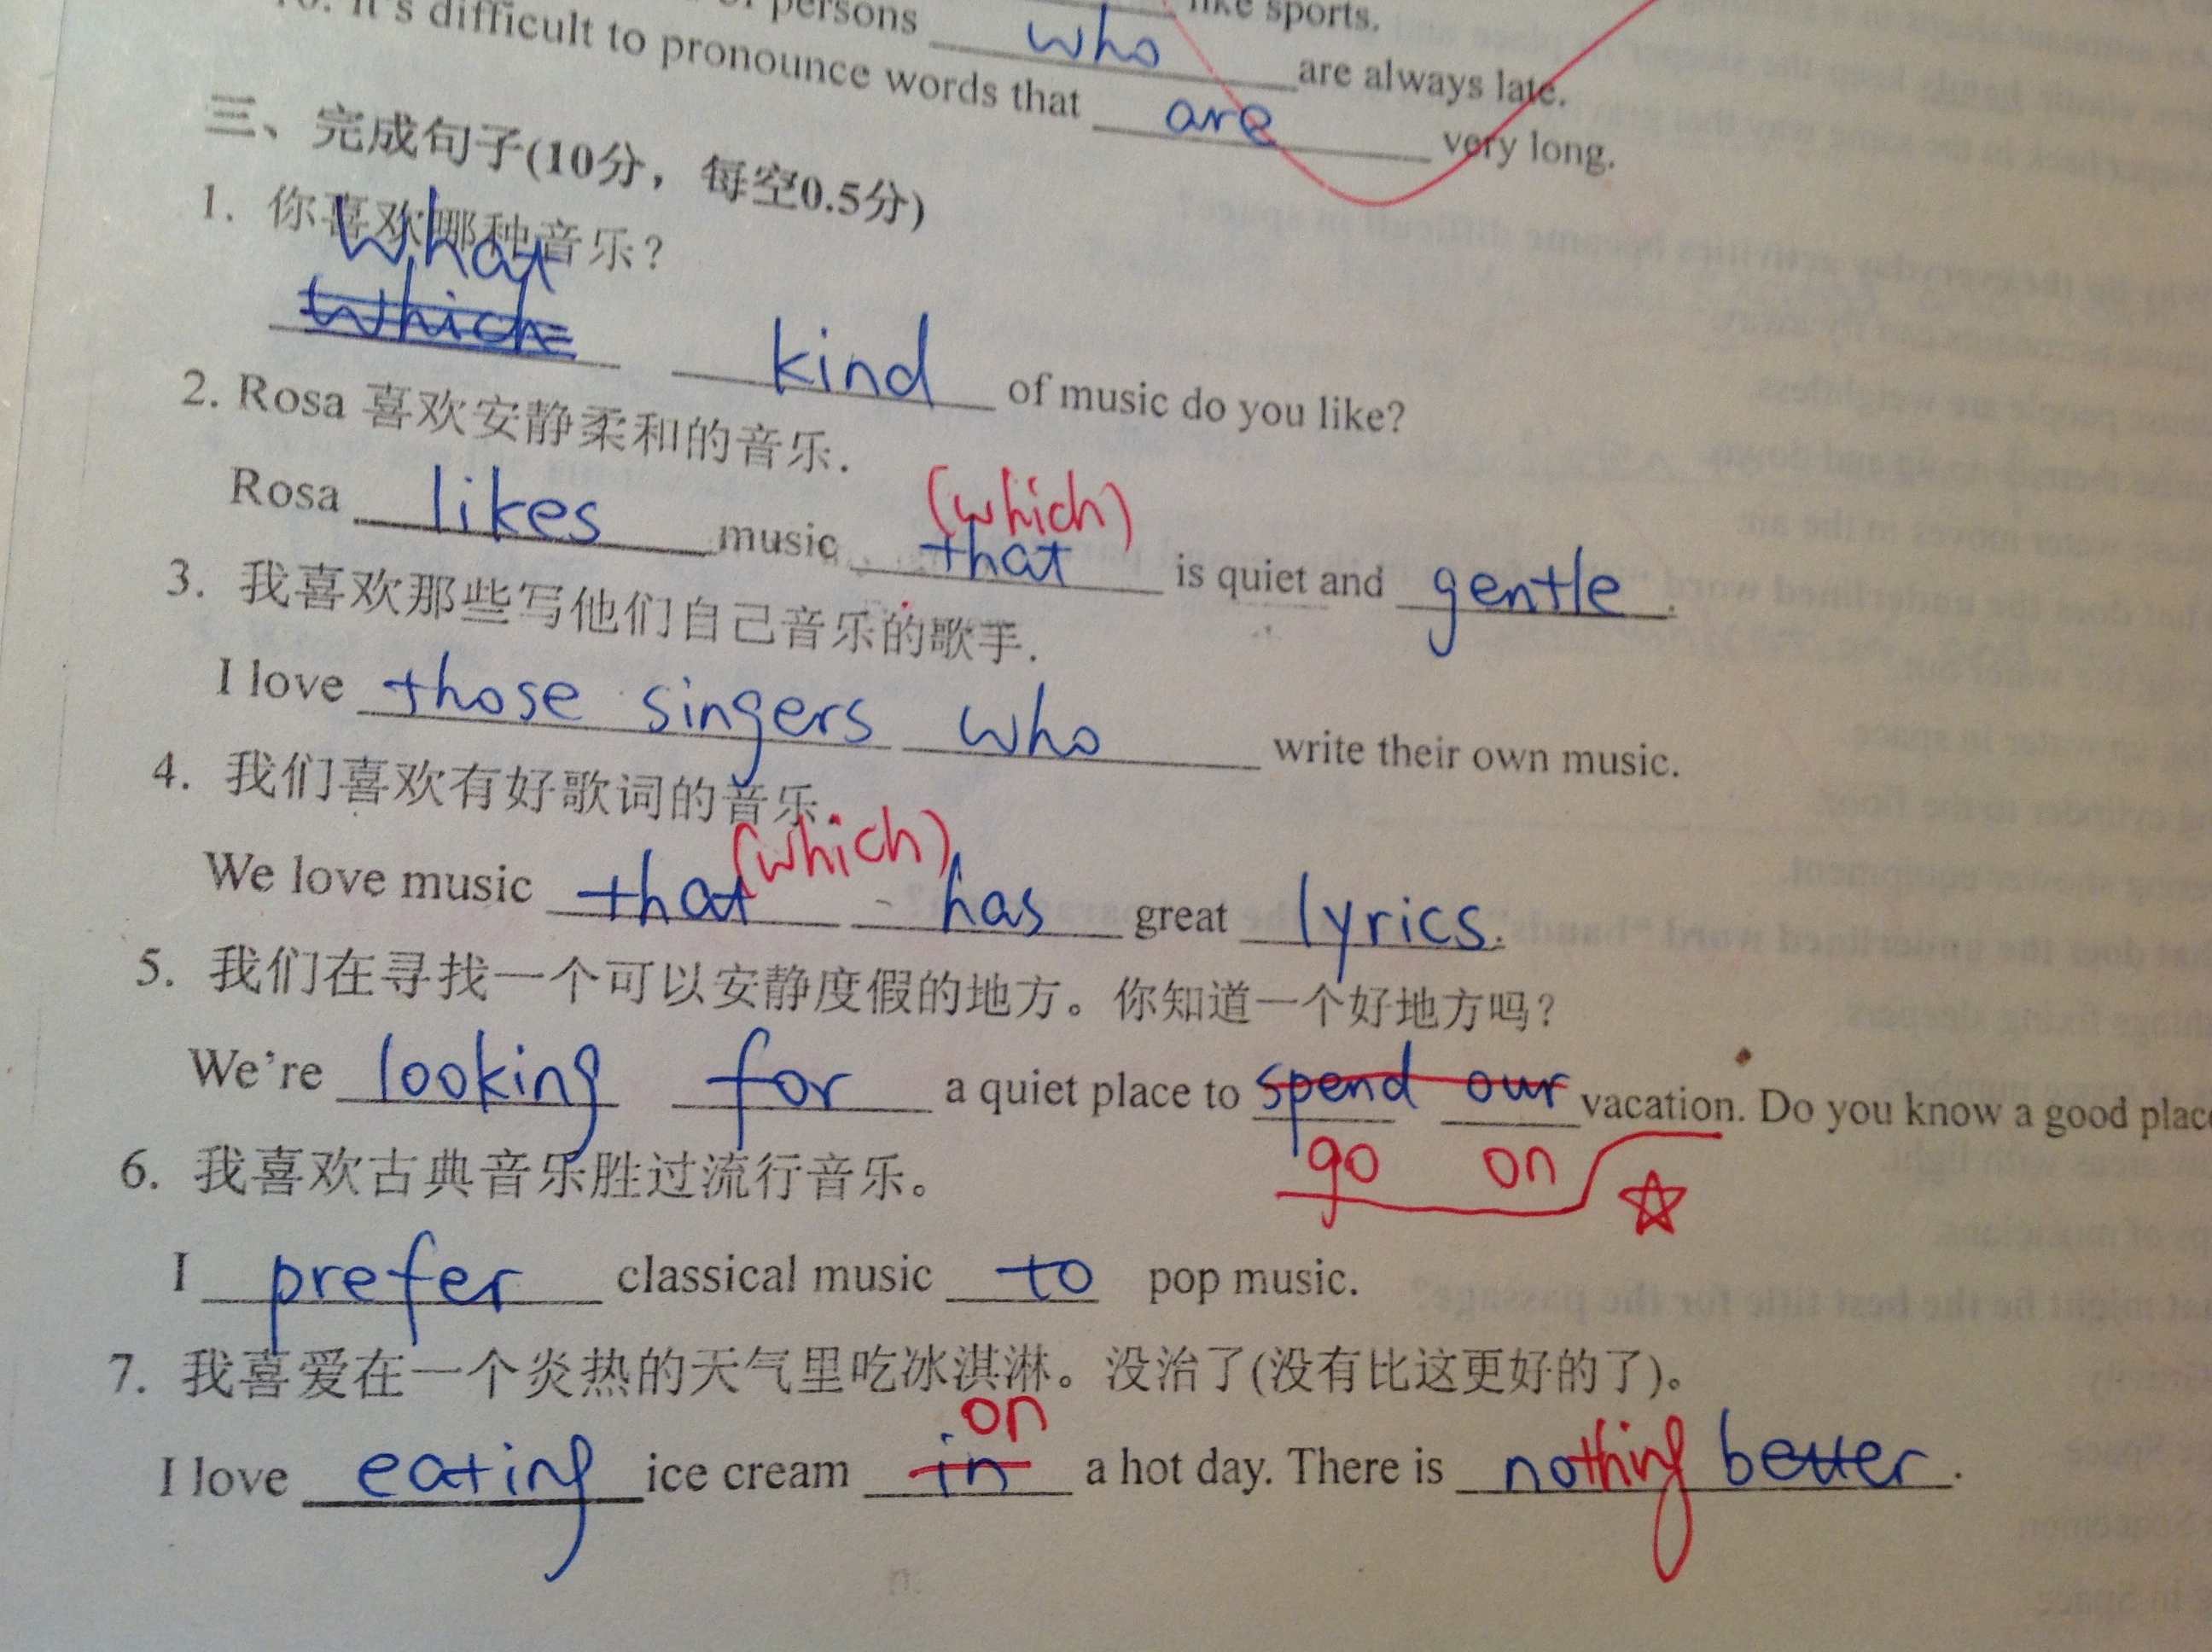 persons who like sports.
It's difficult to pronounce words that are always late.
are very long.
三、完成句子(10分，每空0.5分)
1. 你喜欢哪种音乐?
What
Which kind of music do you like?
2. Rosa 喜欢安静柔和的音乐.
(which)
Rosa likes music that is quiet and gentle.
3. 我喜欢那些写他们自己音乐的歌手.
I love those singers who write their own music.
4. 我们喜欢有好歌词的音乐.
(which)
We love music that has great lyrics.
5. 我们在寻找一个可以安静度假的地方。你知道一个好地方吗?
We're looking for a quiet place to spend our vacation. Do you know a good place
go on
6. 我喜欢古典音乐胜过流行音乐。
I prefer classical music to pop music.
7. 我喜爱在一个炎热的天气里吃冰淇淋。没治了(没有比这更好的了)。
on
I love eating ice cream in a hot day. There is nothing better.